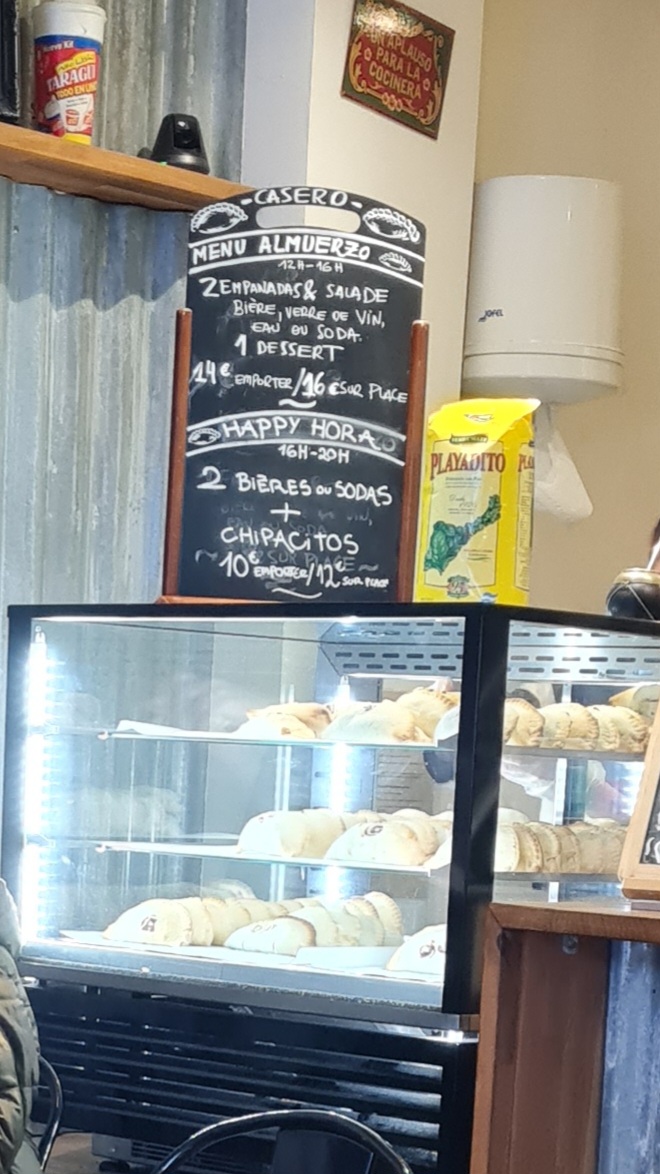 Nuevo Kit
TARAGUI
TODO EN UNO
UN APLAUSO
PARA LA
COCINERA
-CASERO-
MENU ALMUERZO
12H-16H
2 EMPANADAS & SALADE
BIÈRE, VERRE DE VIN,
EAU OU SODA.
1 DESSERT
14€ EMPORTER/16€ SUR PLACE
HAPPY HORA
16H-20H
2 BIÈRES OU SODAS
+
CHIPACITOS
10€ EMPORTER/12€ SUR PLACE
JOFEL
PLAYADITO